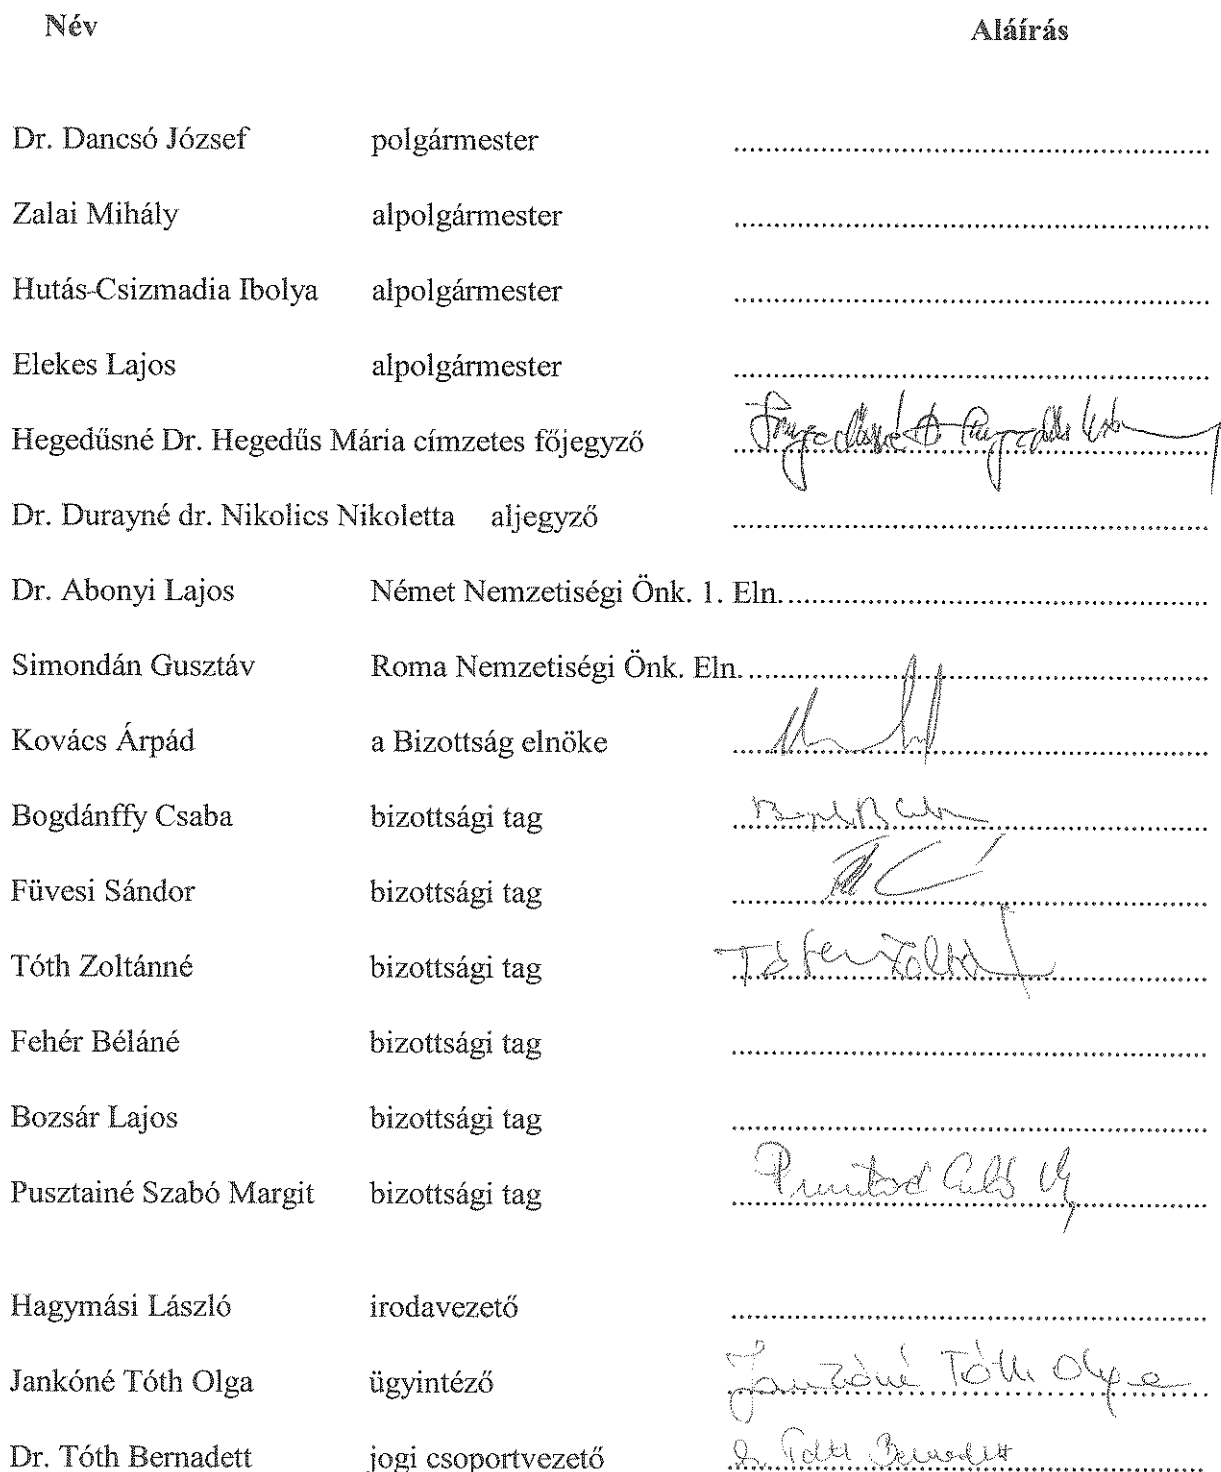 Név Aláírás
Dr. Dancsó József polgármester ........................................
Zalai Mihály alpolgármester ........................................
Hutás-Csizmadia Ibolya alpolgármester ........................................
Elekes Lajos alpolgármester ........................................
Hegedűsné Dr. Hegedűs Mária címzetes főjegyző Hegedűsné Dr Hegedűs
Dr. Durayné dr. Nikolics Nikoletta aljegyző ........................................
Dr. Abonyi Lajos Német Nemzetiségi Önk. 1. Eln. ........................................
Simondán Gusztáv Roma Nemzetiségi Önk. Eln. ........................................
Kovács Árpád a Bizottság elnöke
Bogdánffy Csaba bizottsági tag
Füvesi Sándor bizottsági tag
Tóth Zoltánné bizottsági tag
Fehér Béláné bizottsági tag ........................................
Bozsár Lajos bizottsági tag ........................................
Pusztainé Szabó Margit bizottsági tag
Hagymási László irodavezető ........................................
Jankóné Tóth Olga ügyintéző Jankóné Tóth Olga
Dr. Tóth Bernadett jogi csoportvezető Dr. Tóth Bernadett